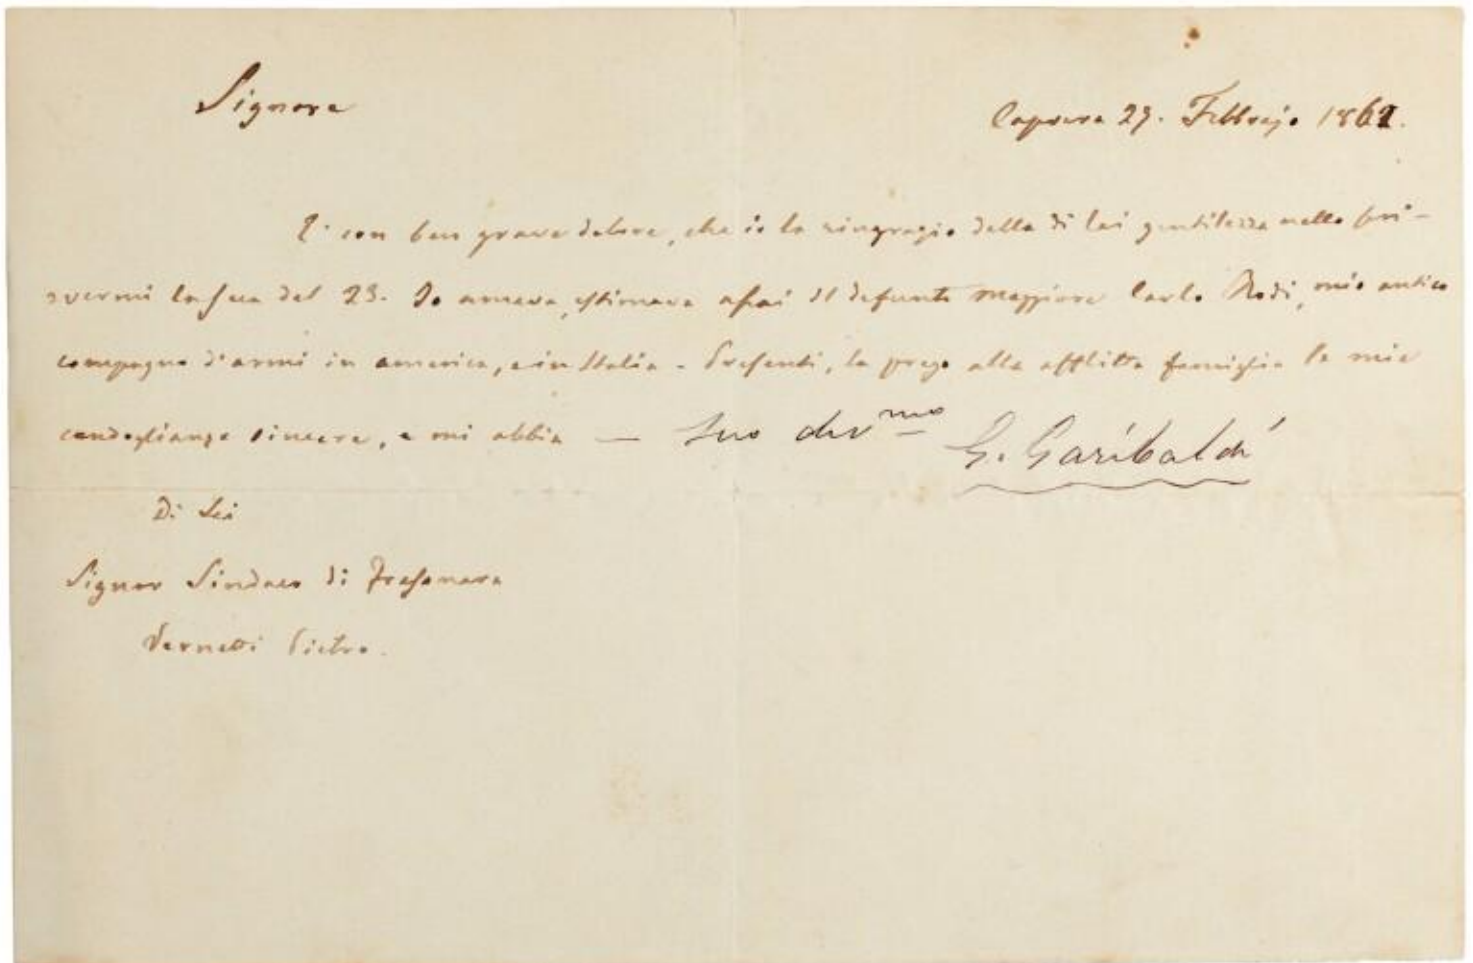 Signore
Caprera 27. Febbrajo 1861.
E' con ben grave dolore, che io la ringrazio della di lei gentilezza nello scri-
vermi la sua del 23. Io amava, estimava assai il defunto Maggiore Carlo Rodi, mio antico
compagno d'armi in america, e in Italia - Presenti, la prego alla afflitta famiglia le mie
condoglianze sincere, e mi abbia — Suo dev.mo G. Garibaldi
Di Lei
Signor Sindaco di Frasonara
Vernetti Pietro.